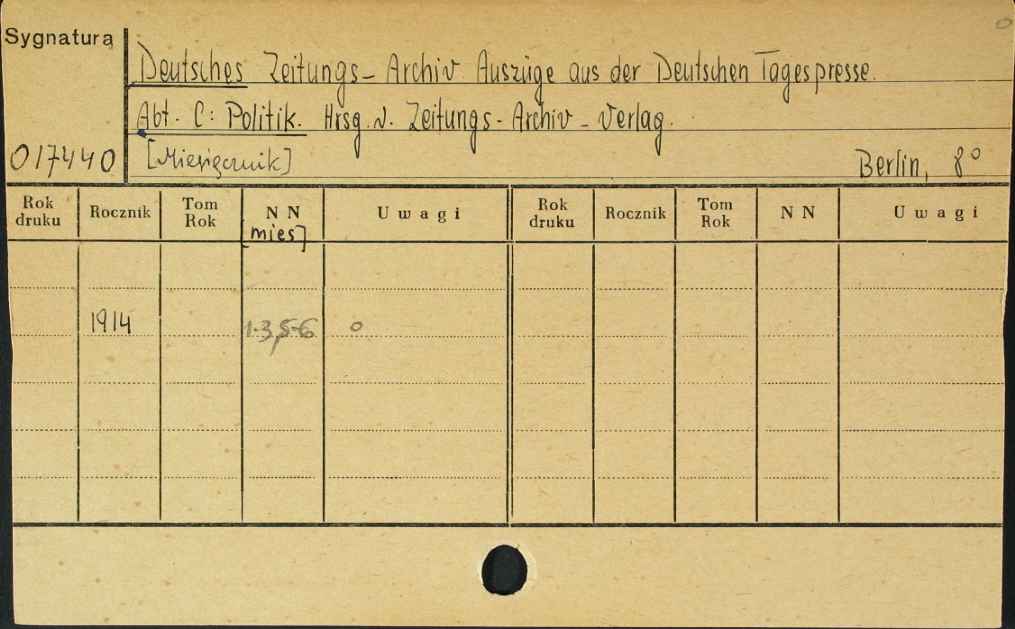 Sygnatura
Deutsches Zeitungs-Archiv Auszüge aus der Deutschen Tagespresse.
Abt. C: Politik. Hrsg. v. Zeitungs-Archiv-Verlag.
017440 [Miesięcznik] Berlin, 8°
Rok druku Rocznik Tom Rok N N [mies] Uwagi Rok druku Rocznik Tom Rok N N Uwagi
1914 1-3,5-6 o